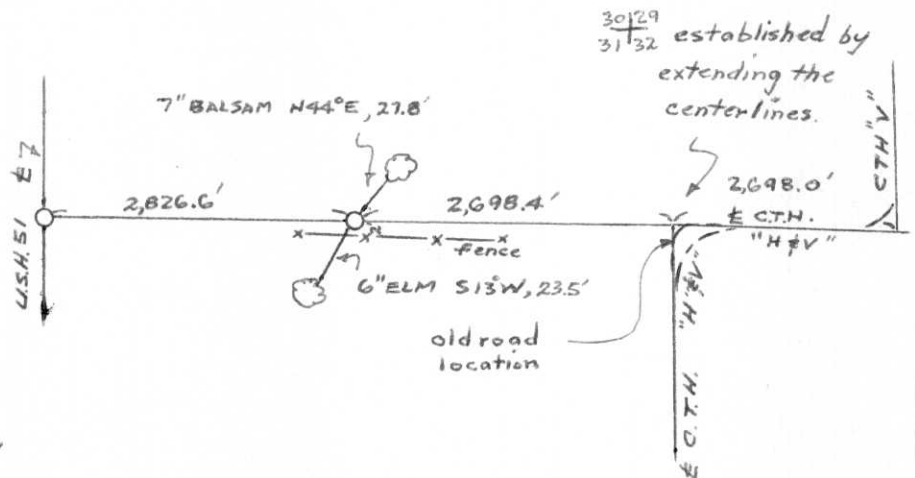 30|29
31|32 established by
extending the
centerlines.
7" BALSAM N44°E, 27.8'
C.T.H. "V"
℄
U.S.H. 51
2,826.6'
2,698.4'
2,698.0'
℄ C.T.H.
"H & V"
fence
6" ELM S13°W, 23.5'
old road
location
℄ C.T.H. "H & V"